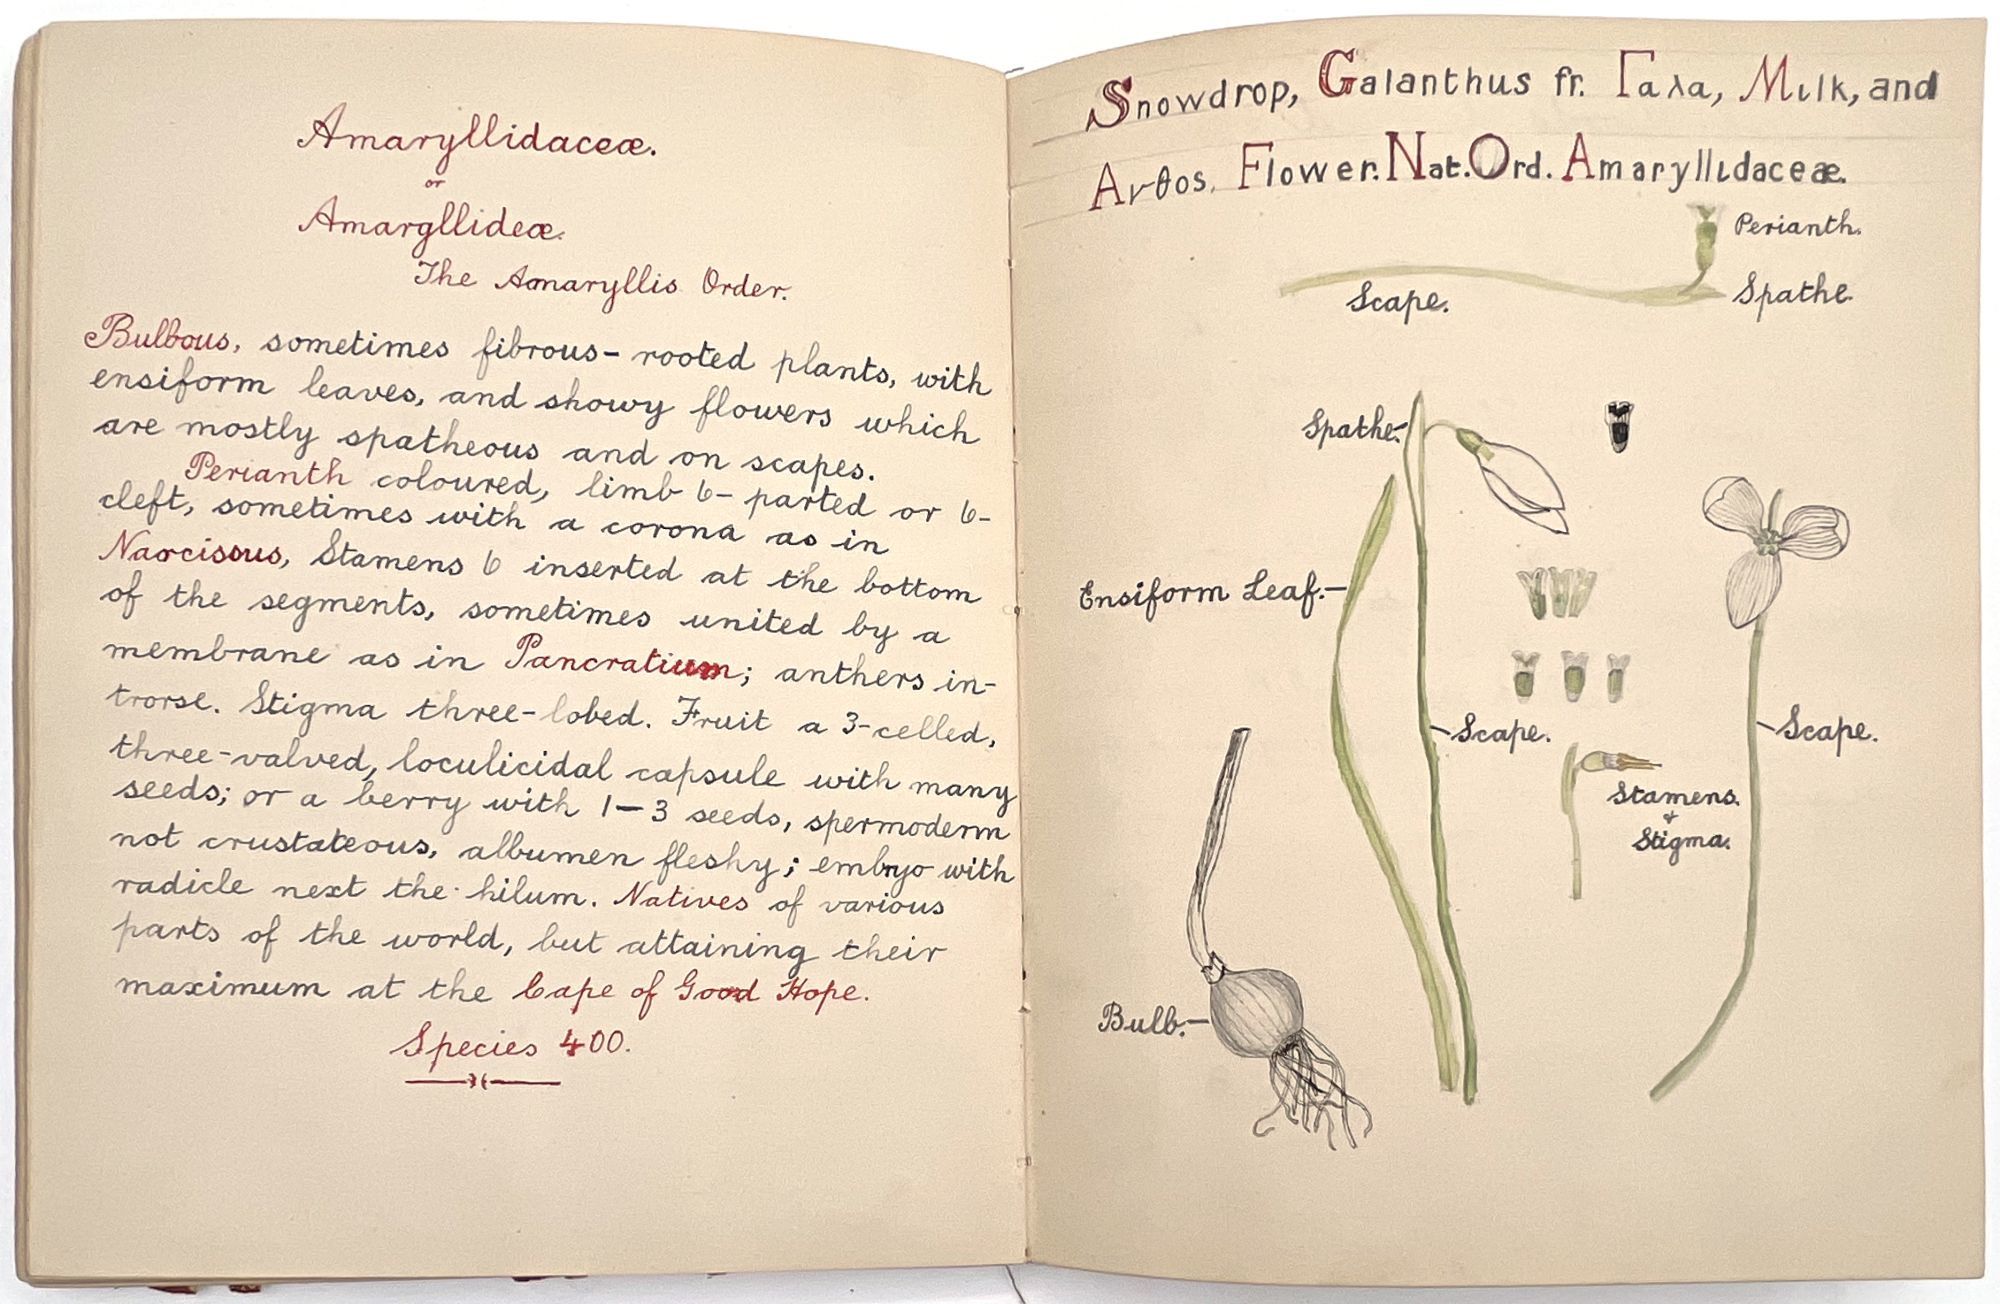 Amaryllidaceæ.
or
Amargllideæ.
The Amaryllis Order.
Bulbous, sometimes fibrous-rooted plants, with
ensiform leaves, and showy flowers which
are mostly spatheous and on scapes.
Perianth coloured, limb 6-parted or 6-
cleft, sometimes with a corona as in
Narcissus, Stamens 6 inserted at the bottom
of the segments, sometimes united by a
membrane as in Pancratium; anthers in-
trorse. Stigma three-lobed. Fruit a 3-celled,
three-valved, loculicidal capsule with many
seeds; or a berry with 1-3 seeds, spermoderm
not crustateous, albumen fleshy; embryo with
radicle next the hilum. Natives of various
parts of the world, but attaining their
maximum at the Cape of Good Hope.
Species 400.
Snowdrop, Galanthus fr. Γαλα, Milk, and
Ανθos, Flower. Nat. Ord. Amaryllidaceæ.
Perianth.
Scape.
Spathe.
Spathe.
Ensiform Leaf.
Scape.
Scape.
Stamens.
&
Stigma.
Bulb.